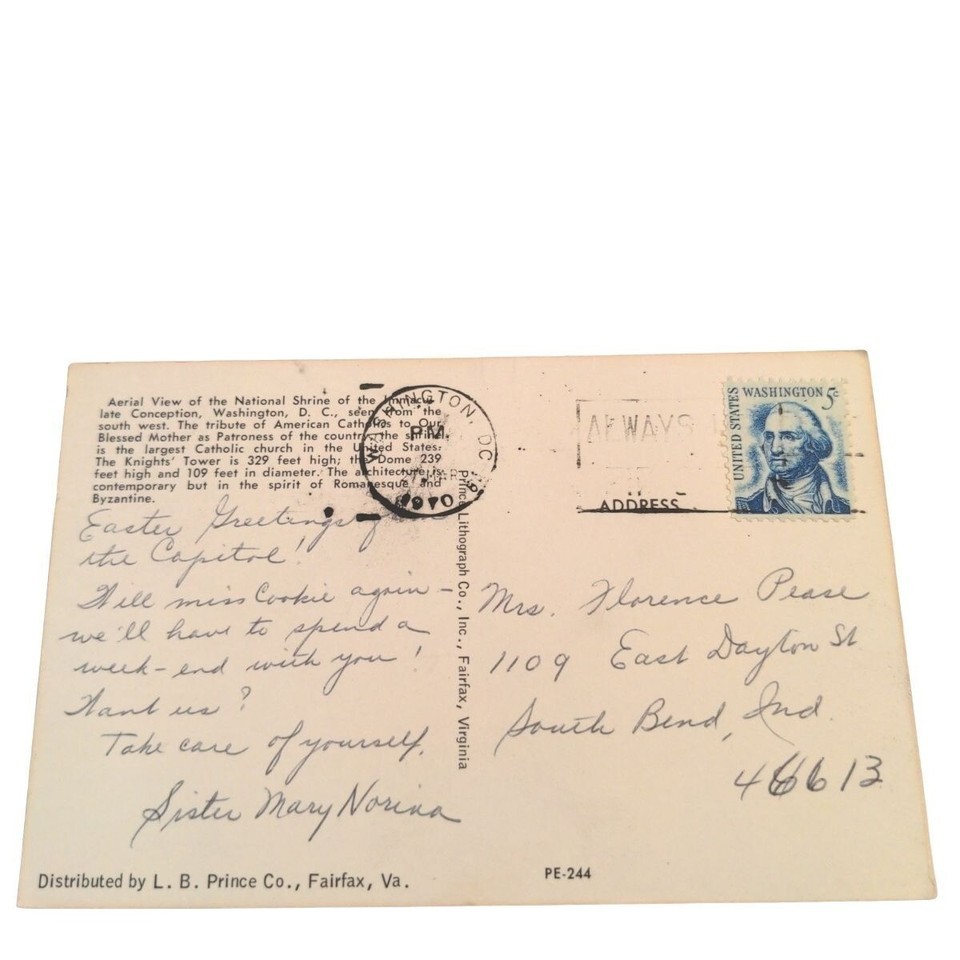 Aerial View of the National Shrine of the Immacu-
late Conception, Washington, D. C., seen from the
south west. The tribute of American Catholics to Our
Blessed Mother as Patroness of the country, the shrine
is the largest Catholic church in the United States.
The Knights' Tower is 329 feet high; the Dome 239
feet high and 109 feet in diameter. The architecture is
contemporary but in the spirit of Romanesque and
Byzantine.
Easter Greetings
the Capitol!
Will miss Cookie again -
we'll have to spend a
week-end with you!
Want us?
Take care of yourself.
Sister Mary Norina
Distributed by L. B. Prince Co., Fairfax, Va.
Prince Lithograph Co., Inc., Fairfax, Virginia
WASHINGTON, DC
P.M.
1970
ALWAYS
ADDRESS
UNITED STATES
WASHINGTON 5c
Mrs. Florence Pease
1109 East Dayton St
South Bend, Ind.
46613
PE-244